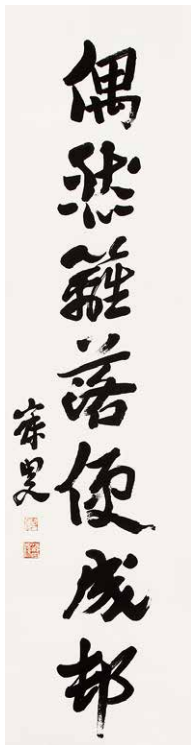 偶然籬落便成邨
寐叟